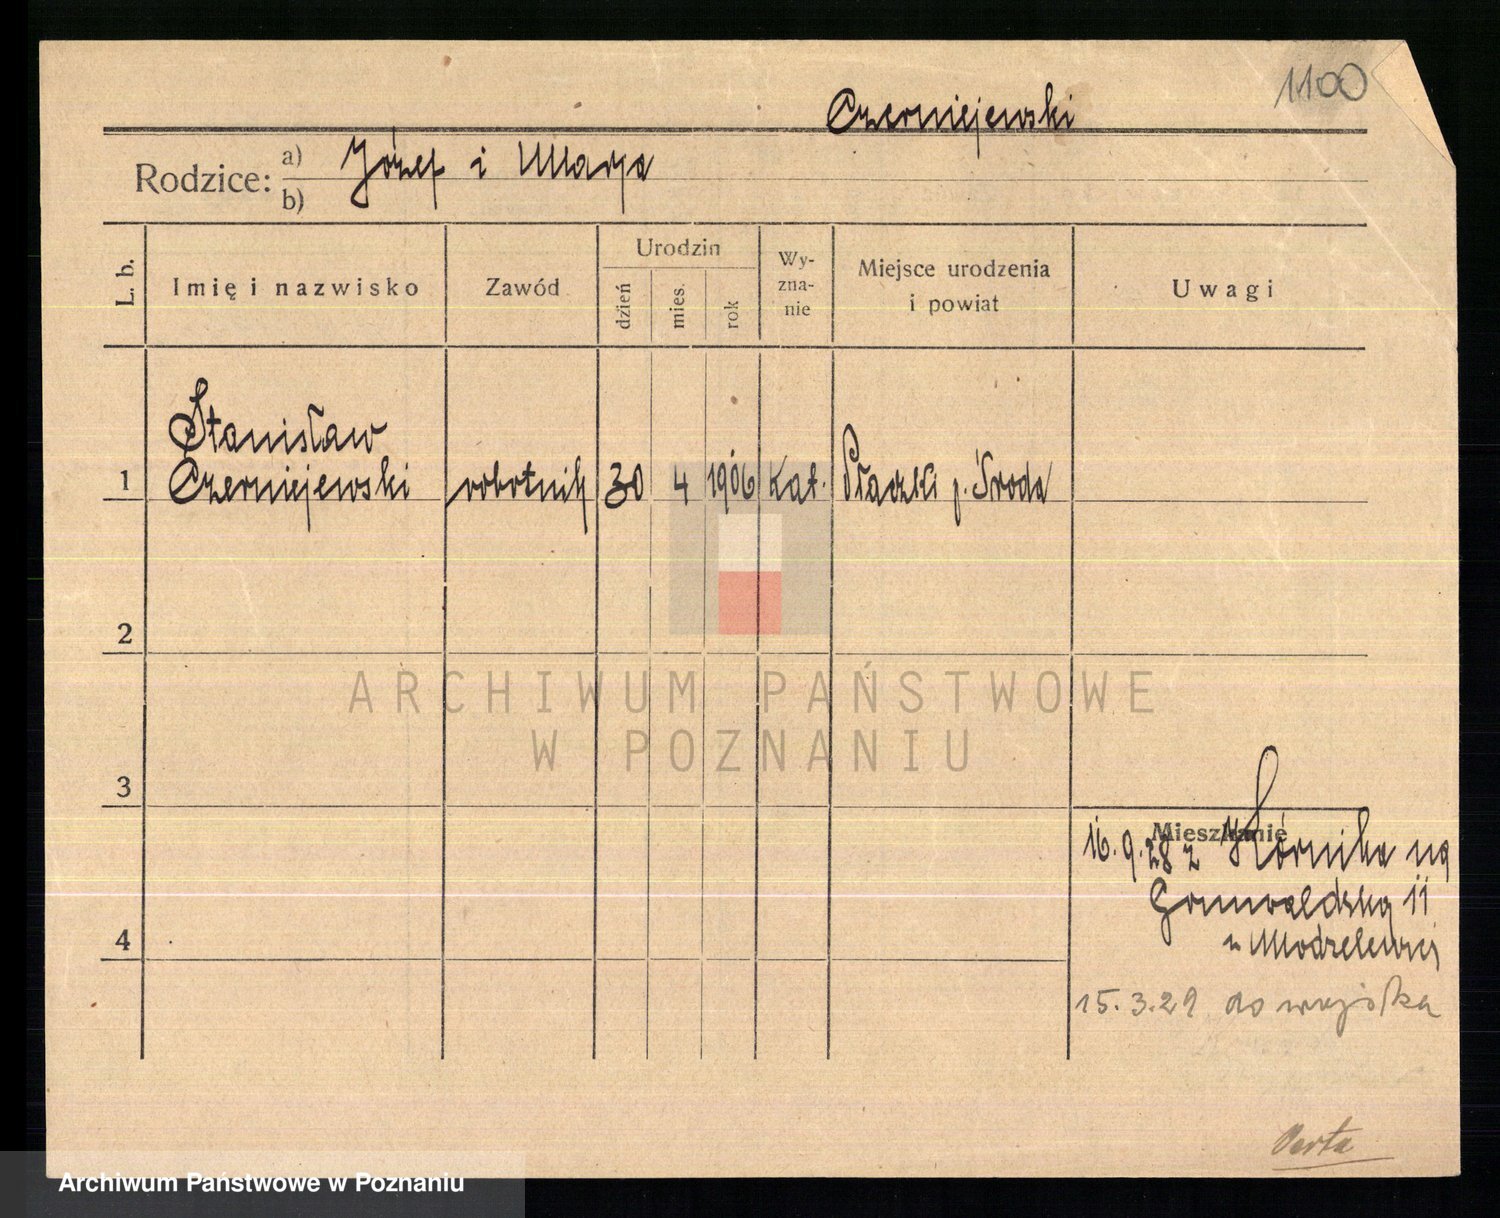 1100
Czerniejewski
Rodzice: a) Józef i Marja
b)
L. b.
Imię i nazwisko
Zawód
Urodzin
dzień
mies.
rok
Wy-
zna-
nie
Miejsce urodzenia
i powiat
Uwagi
Stanisław
1 Czerniejewski robotnik 30 4 1906 kat. Płaczki p. Środa
2
ARCHIWUM PAŃSTWOWE
W POZNANIU
3
Mieszkanie
16.9.28 z Kórnika na
Grunwaldzką 11
4
15.3.29 do wojska
Archiwum Państwowe w Poznaniu